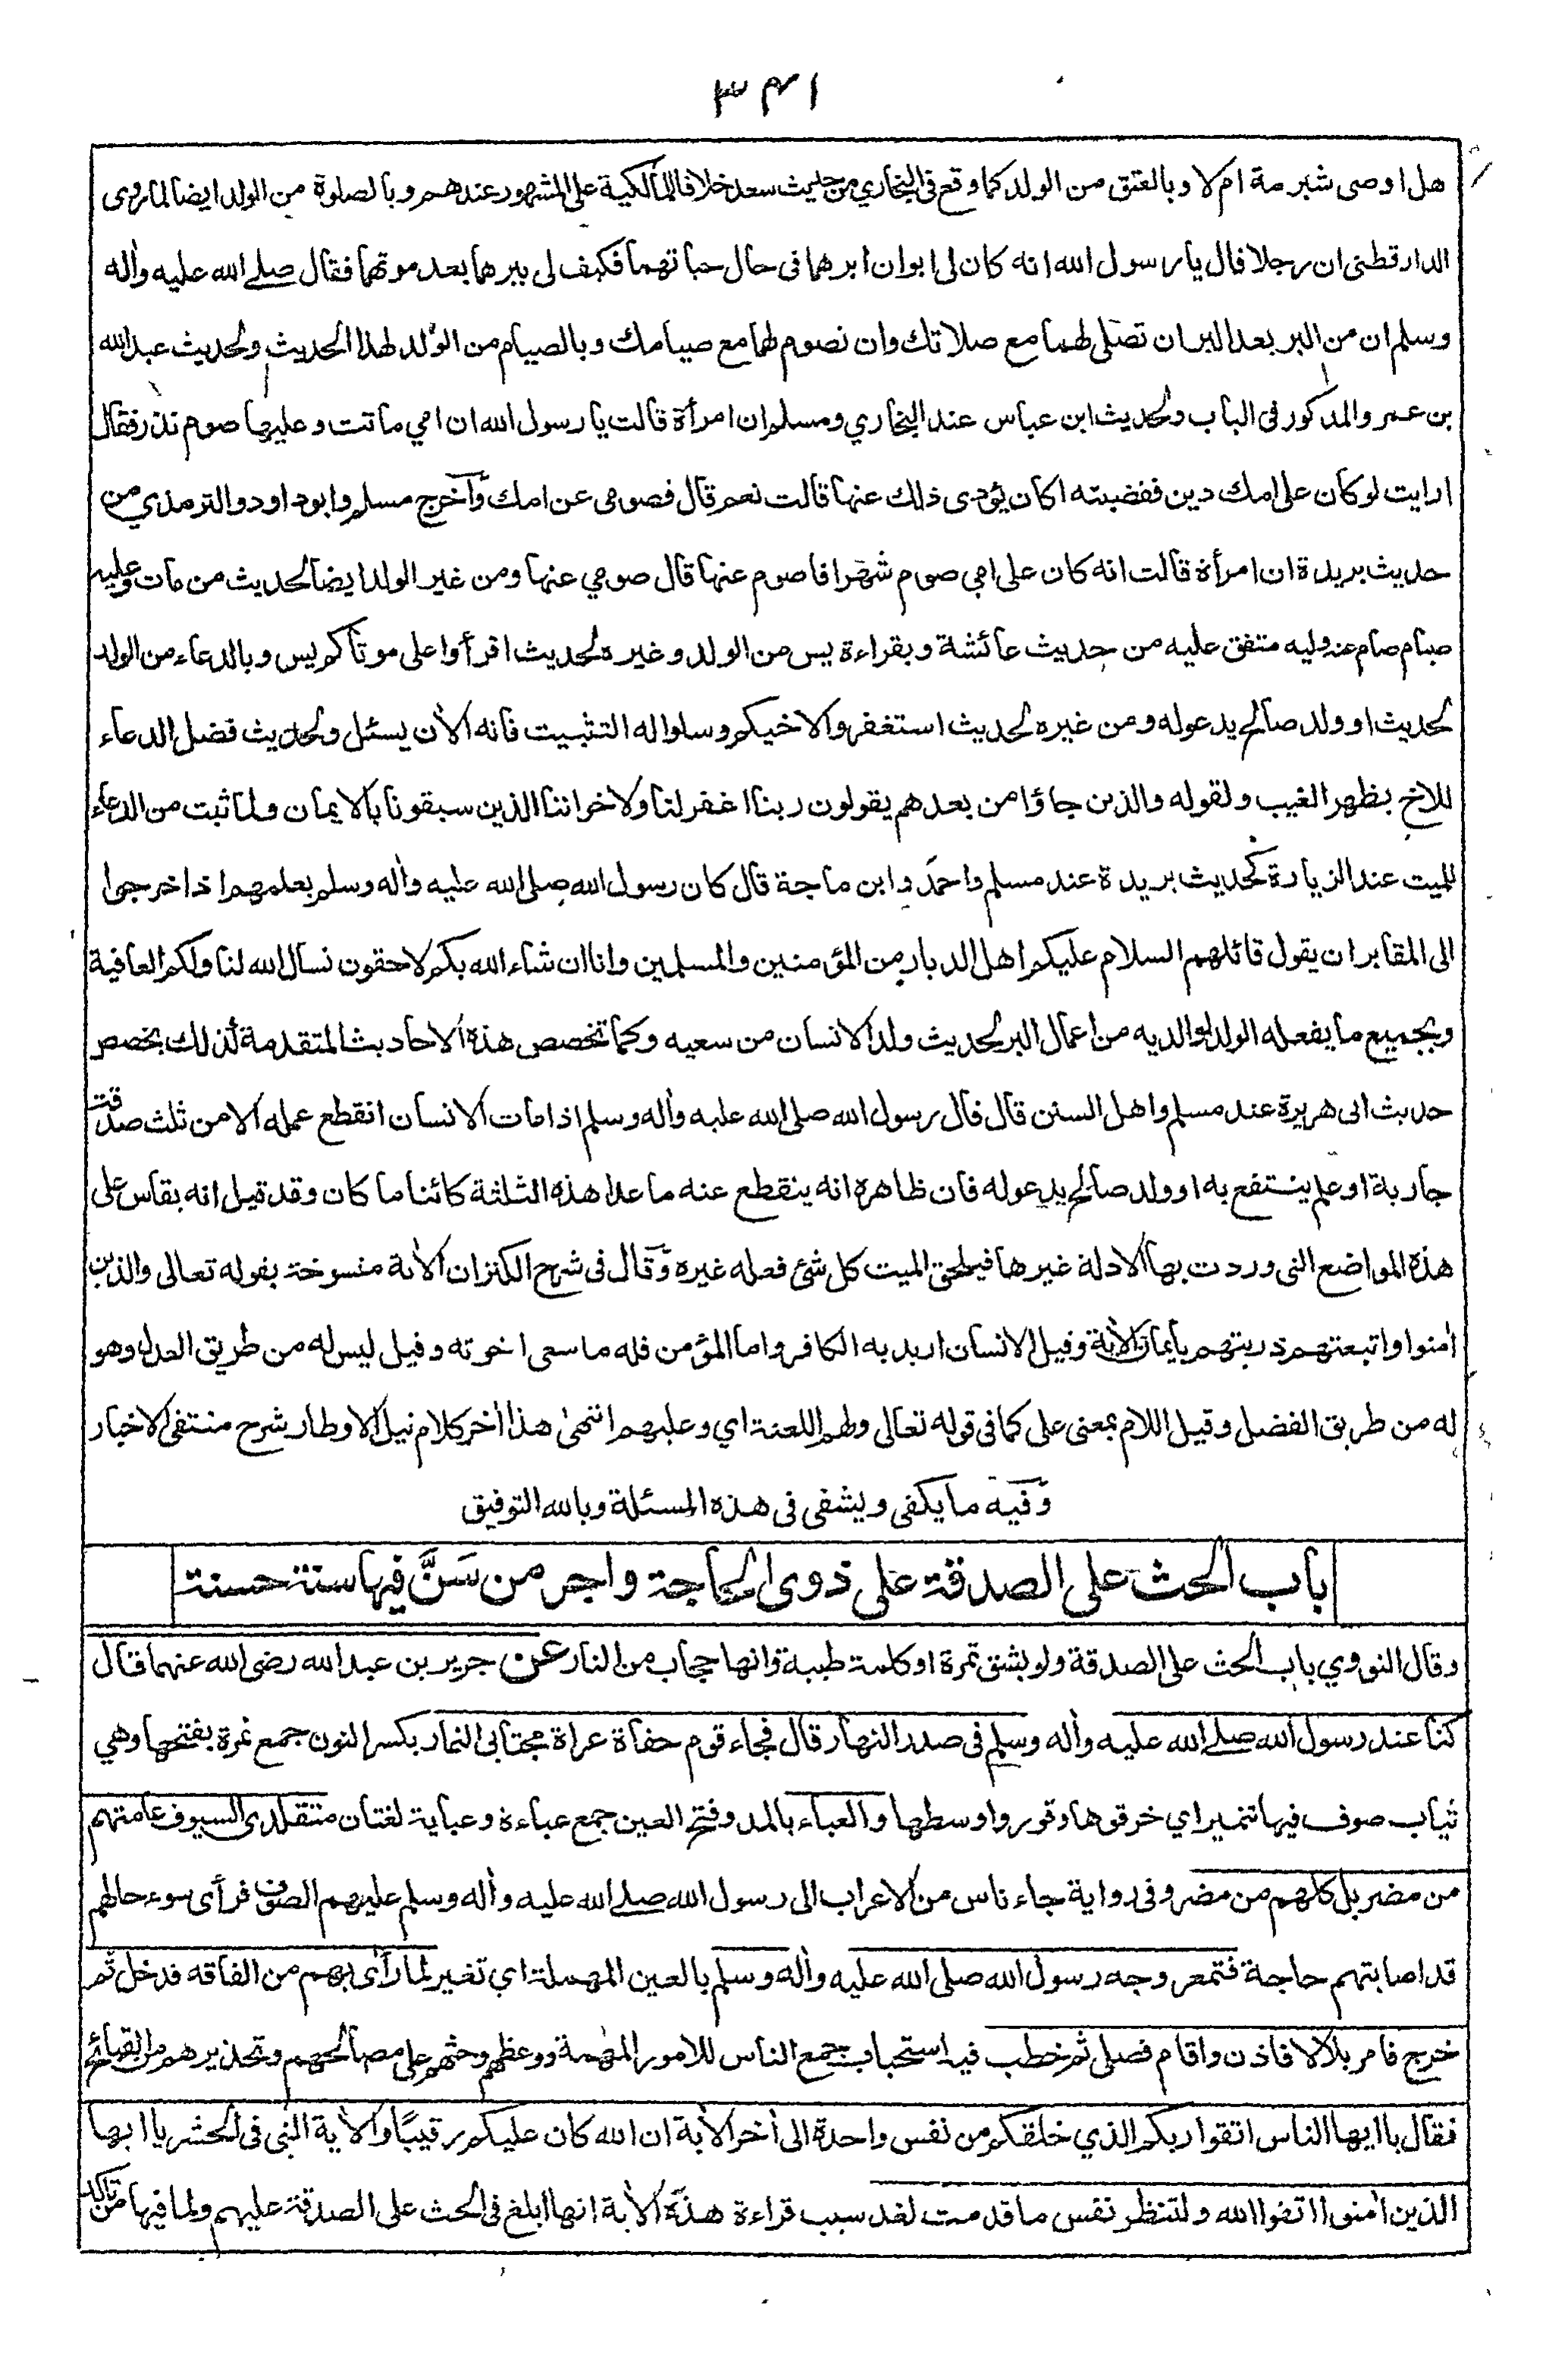 ٣٤١
هل اوصى شبرمة ام لا وبالعتق من الولد كما وقع فى البخاري من حديث سعد خلافا للمالكية على المشهور عندهم وبالصلوة من الولد ايضا لما روى
الدارقطنى ان رجلا قال يا رسول الله انه كان لى ابوان ابرهما فى حال حياتهما فكيف لى ببرهما بعد موتهما فقال صلى الله عليه وأله
وسلم ان من البر بعد البر ان تصلى لهما مع صلاتك وان تصوم لهما مع صيامك وبالصيام من الولد لهذا الحديث ولحديث عبد الله
بن عمر والمذكور فى الباب ولحديث ابن عباس عند البخاري ومسلم ان امرأة قالت يا رسول الله ان امي ماتت وعليها صوم نذر فقال
ارايت لو كان على امك دين فقضيته اكان يؤدى ذلك عنها قالت نعم قال فصومى عن امك وأخرج مسلم وابوداود والترمذي من
حديث بريدة ان امرأة قالت انه كان على امي صوم شهر افاصوم عنها قال صومي عنها ومن غير الولد ايضا لحديث من مات وعليه
صيام صام عنه وليه متفق عليه من حديث عائشة وبقراءة يس من الولد وغيره لحديث اقرأوا على موتاكم يس وبالدعاء من الولد
لحديث او ولد صالح يدعوله ومن غيره لحديث استغفروا لاخيكم وسلوا له التثبيت فانه الأن يسئل ولحديث فضل الدعاء
للاخ بظهر الغيب ولقوله والذين جاؤا من بعدهم يقولون ربنا اغفر لنا ولاخواننا الذين سبقونا بالايمان ولما ثبت من الدعاء
للميت عند الزيارة كحديث بريدة عند مسلم واحمد وابن ماجة قال كان رسول الله صلى الله عليه وأله وسلم يعلمهم اذا خرجوا
الى المقابر ان يقول قائلهم السلام عليكم اهل الديار من المؤمنين والمسلمين وانا ان شاء الله بكم لاحقون نسأل الله لنا ولكم العافية
وبجميع ما يفعله الولد لوالديه من اعمال البر لحديث ولد الانسان من سعيه وكما تخصص هذه الاحاديث المتقدمة كذلك يخصص
حديث ابى هريرة عند مسلم واهل السنن قال قال رسول الله صلى الله عليه وأله وسلم اذا مات الانسان انقطع عمله الا من ثلث صدقة
جارية او علم ينتفع به او ولد صالح يدعوله فان ظاهره انه ينقطع عنه ما عدا هذه الثلثة كائنا ما كان وقد قيل انه يقاس على
هذه المواضع التى وردت بها الادلة غيرها فيلحق الميت كل شئ فعله غيره وقال فى شرح الكنز ان الأية منسوخة بقوله تعالى والذين
أمنوا واتبعتهم ذريتهم بايمان الأية وقيل الانسان اريد به الكافر واما المؤمن فله ما سعى اخوته وقيل ليس له من طريق العدل وهو
له من طريق الفضل وقيل اللام بمعنى على كما فى قوله تعالى ولهم اللعنة اي وعليهم انتهىٰ هذا أخر كلام نيل الاوطار شرح منتقى الاخبار
وفيه ما يكفى ويشفى فى هذه المسئلة وبالله التوفيق
باب الحث على الصدقة على ذوى الحاجة واجر من سَنَّ فيها سنة حسنة
وقال النووي باب الحث على الصدقة ولو بشق تمرة او كلمة طيبة وانها حجاب من النار عن جرير بن عبد الله رضى الله عنهما قال
كنا عند رسول الله صلى الله عليه وأله وسلم فى صدر النهار قال فجاء قوم حفاة عراة مجتابى النمار بكسر النون جمع نمرة بفتحها وهي
ثياب صوف فيها تنمير اي خرقوها وقوروا وسطها والعباء بالمد وفتح العين جمع عباءة وعباية لغتان متقلدى السيوف عامتهم
من مضر بل كلهم من مضر وفى رواية جاء ناس من الاعراب الى رسول الله صلى الله عليه وأله وسلم عليهم الصوف فرأى سوء حالهم
قد اصابتهم حاجة فتمعر وجه رسول الله صلى الله عليه وأله وسلم بالعين المهملة اي تغير لما رأى بهم من الفاقه فدخل ثم
خرج فامر بلالا فاذن واقام فصلى ثم خطب فيه استحباب جمع الناس للامور المهمة ووعظهم وحثهم على مصالحهم وتحذيرهم من القبائح
فقال يا ايها الناس اتقوا ربكم الذي خلقكم من نفس واحدة الى أخر الأية ان الله كان عليكم رقيبًا والأية التى فى الحشر يا ايها
الذين أمنوا اتقوا الله ولتنظر نفس ما قدمت لغد سبب قراءة هذه الأية انها ابلغ فى الحث على الصدقة عليهم ولما فيها من تاكد